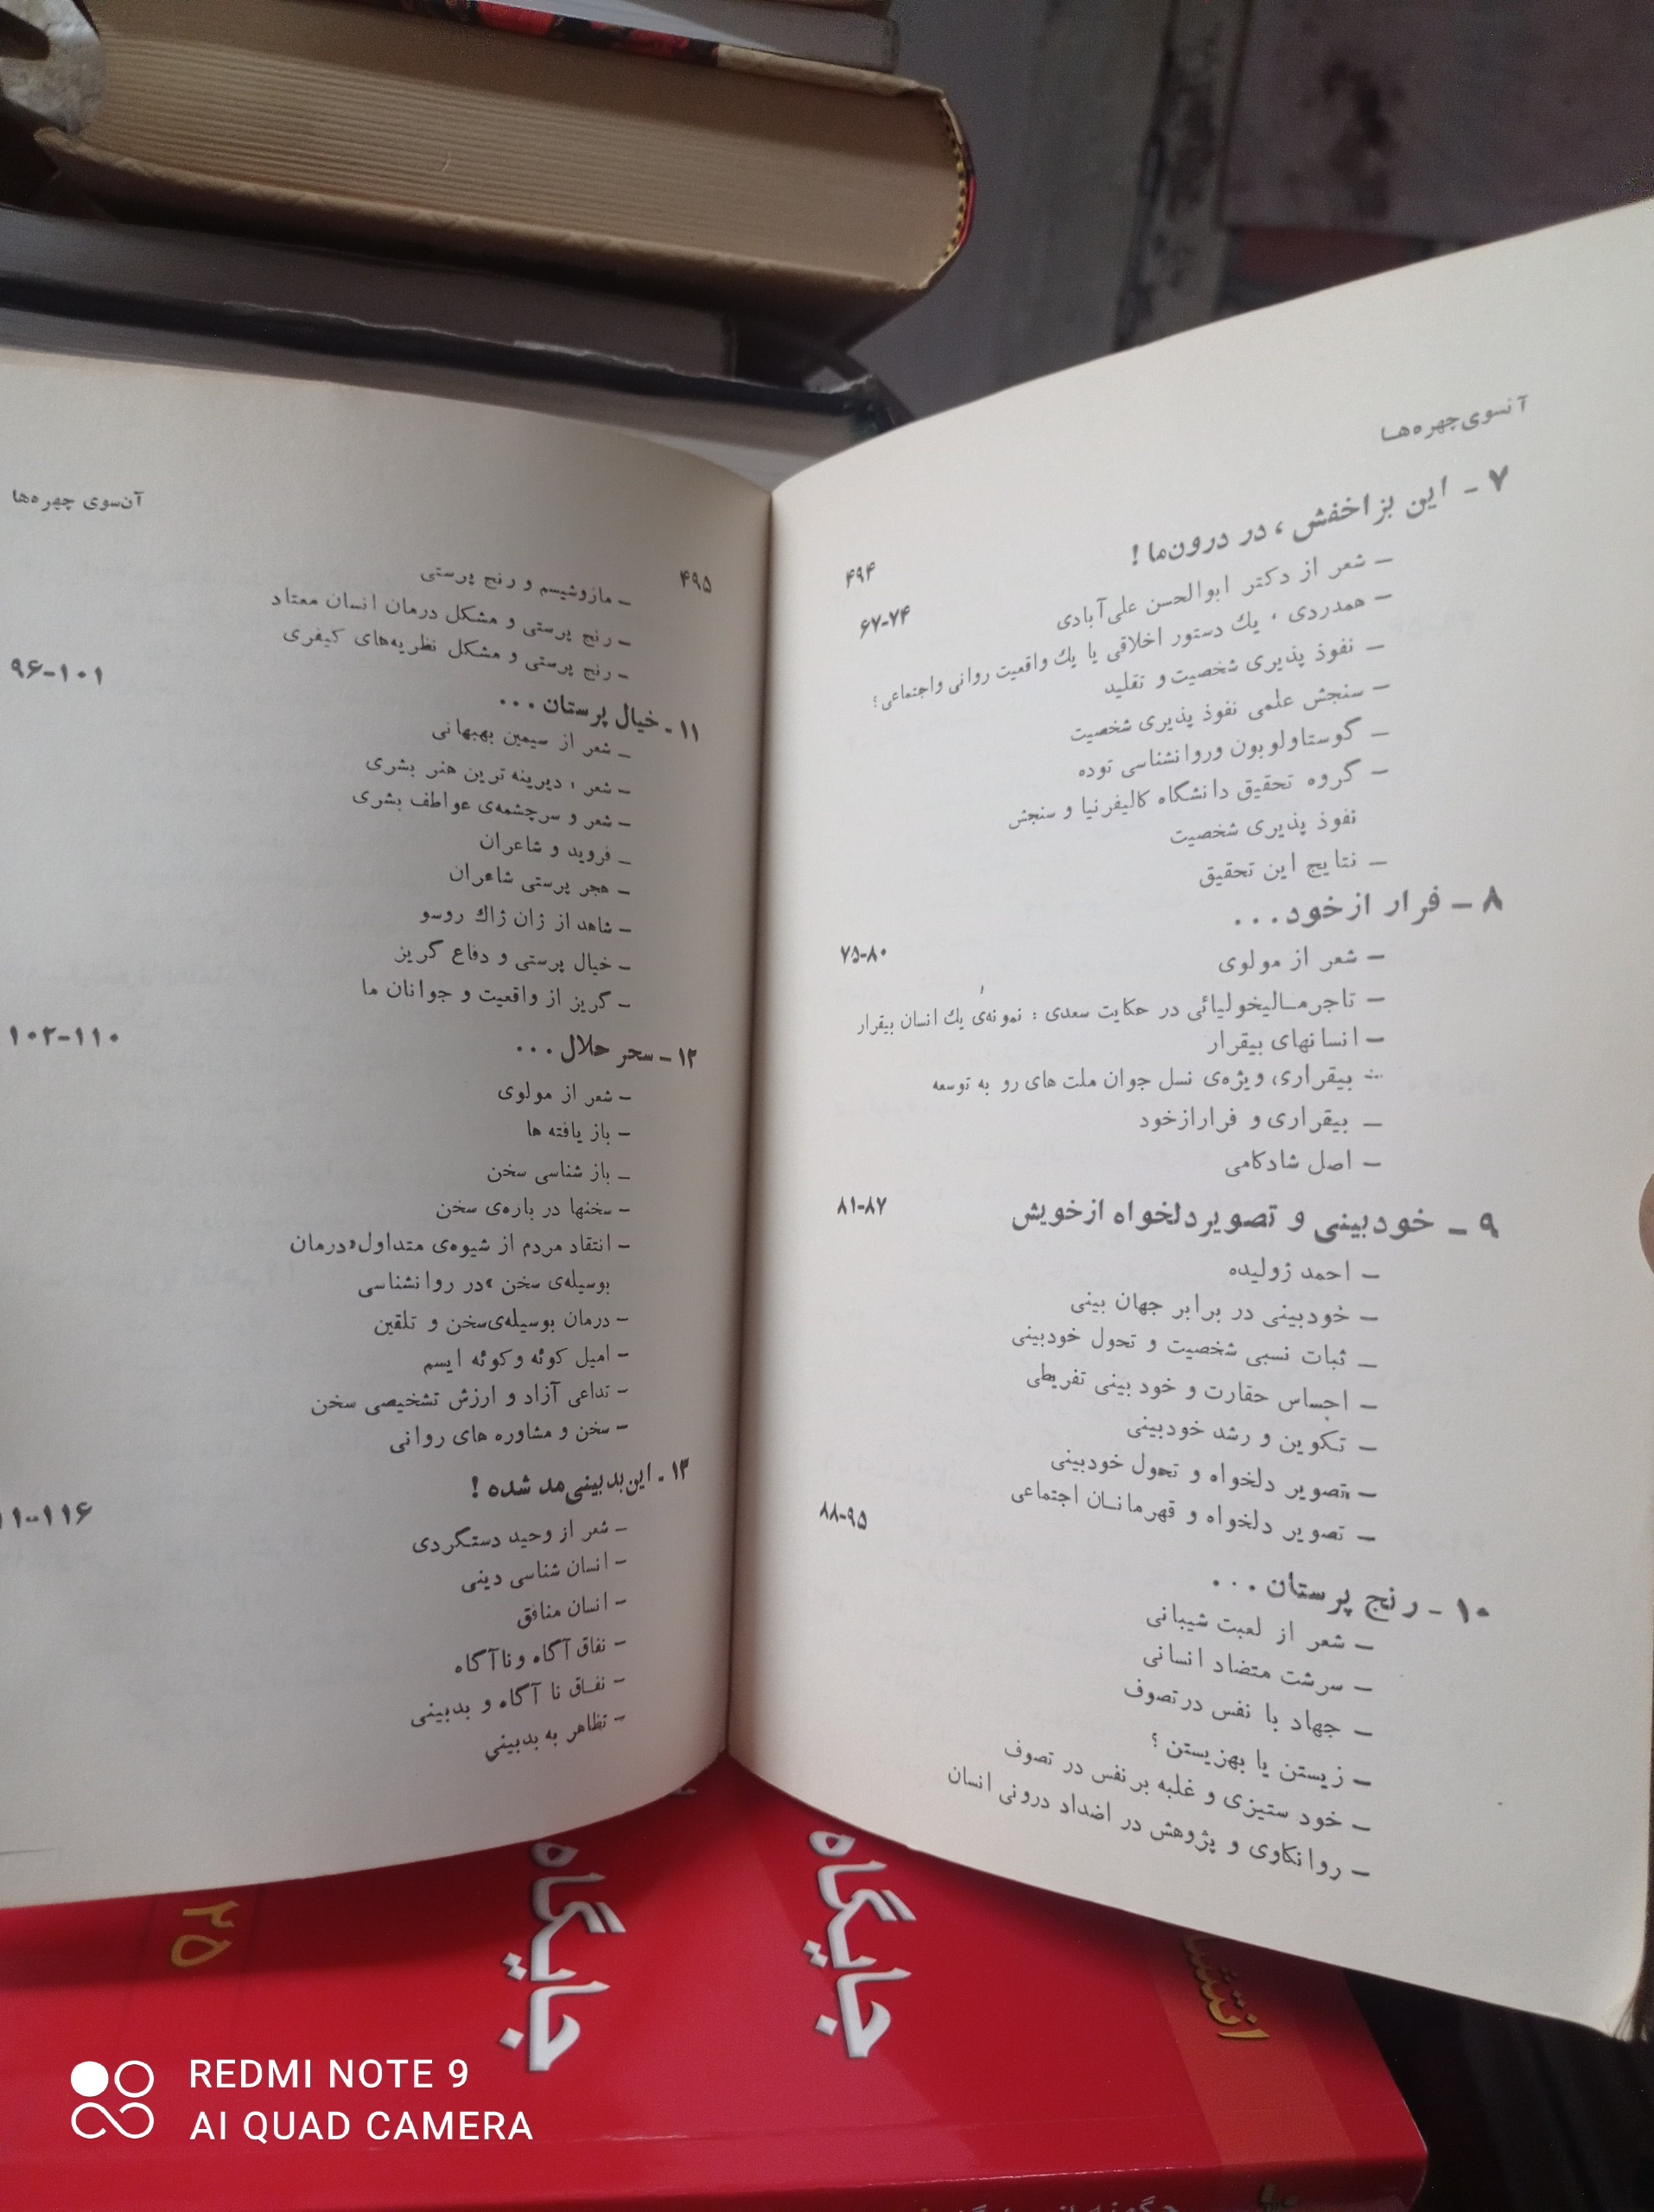 آنسوی‌چهره‌ها
۴۹۴
۷ - این بزاخفش ، در درون‌ما !
۶۷-۷۴
– شعر از دکتر ابوالحسن علی‌آبادی
– همدردی ، یك دستور اخلاقی یا یك واقعیت روانی واجتماعی ؟
– نفوذ پذیری شخصیت و تقلید
– سنجش علمی نفوذ پذیری شخصیت
– گوستاولوبون وروانشناسی توده
– گروه تحقیق دانشگاه کالیفرنیا و سنجش
نفوذ پذیری شخصیت
– نتایج این تحقیق
۸ – فرار ازخود...
۷۵-۸۰
– شعر از مولوی
– تاجرمالیخولیائی در حکایت سعدی : نمونه‌ی یك انسان بیقرار
– انسانهای بیقرار
– بیقراری، ویژه‌ی نسل جوان ملت های رو به توسعه
– بیقراری و فرارازخود
– اصل شادکامی
۹ – خودبینی و تصویردلخواه ازخویش
۸۱-۸۷
– احمد ژولیده
– خودبینی در برابر جهان بینی
– ثبات نسبی شخصیت و تحول خودبینی
– احساس حقارت و خود بینی تفریطی
– تکوین و رشد خودبینی
– تصویر دلخواه و تحول خودبینی
– تصویر دلخواه و قهرمانان اجتماعی
۱۰ - رنج پرستان ...
۸۸-۹۵
– شعر از لعبت شیبانی
– سرشت متضاد انسانی
– جهاد با نفس درتصوف
– زیستن یا بهزیستن ؟
– خود ستیزی و غلبه برنفس در تصوف
– روانکاوی و پژوهش در اضداد درونی انسان
آن‌سوی چهره‌ها
۴۹۵
– مازوشیسم و رنج پرستی
– رنج پرستی و مشکل درمان انسان معتاد
– رنج پرستی و مشکل نظریه‌های کیفری
۱۱ - خیال پرستان ...
۹۶-۱۰۱
– شعر از سیمین بهبهانی
– شعر ، دیرینه ترین هنر بشری
– شعر و سرچشمه‌ی عواطف بشری
– فروید و شاعران
– هجر پرستی شاعران
– شاهد از ژان ژاك روسو
– خیال پرستی و دفاع گریز
– گریز از واقعیت و جوانان ما
۱۲ - سحر حلال ...
۱۰۲-۱۱۰
– شعر از مولوی
– باز یافته ها
– باز شناسی سخن
– سخنها در باره‌ی سخن
– انتقاد مردم از شیوه‌ی متداول«درمان
بوسیله‌ی سخن »در روانشناسی
– درمان بوسیله‌ی‌سخن و تلقین
– امیل کوئه وکوئه ایسم
– تداعی آزاد و ارزش تشخیصی سخن
– سخن و مشاوره های روانی
۱۳ - این‌بدبینی‌مد شده !
۱۱-۱۱۶
– شعر از وحید دستگردی
– انسان شناسی دینی
– انسان منافق
– نفاق آگاه وناآگاه
– نفاق نا آگاه و بدبینی
– تظاهر به بدبینی
جایگاه
جایگاه
۲۵
REDMI NOTE 9
AI QUAD CAMERA